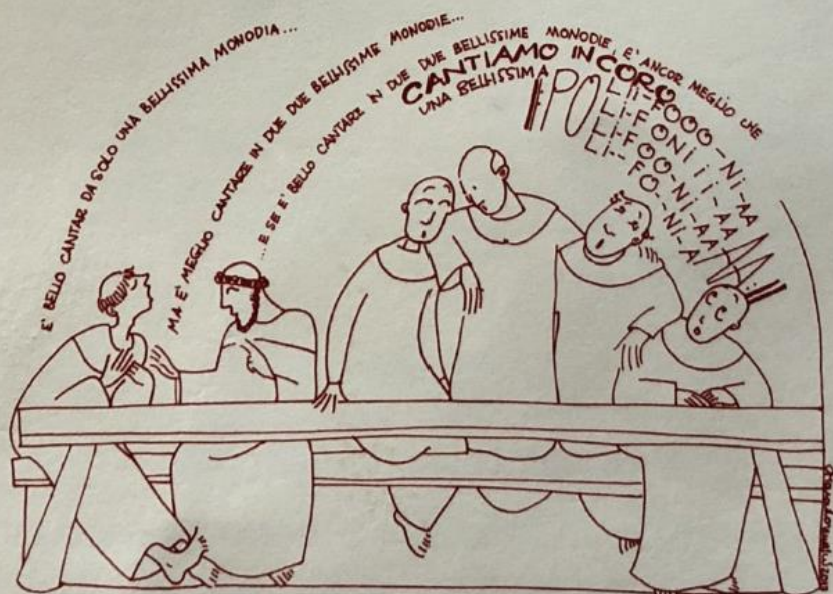 È BELLO CANTAR DA SOLO UNA BELLISSIMA MONODIA...
MA È MEGLIO CANTARE IN DUE DUE BELLISSIME MONODIE...
...E SE È BELLO CANTARE IN DUE DUE BELLISSIME MONODIE, È ANCOR MEGLIO CHE
CANTIAMO IN CORO
UNA BELLISSIMA
POLII-FOOO-NI-AA
LI-FONI ii-AA
LI-FOO-NI-AA
LI--FO-NI-A